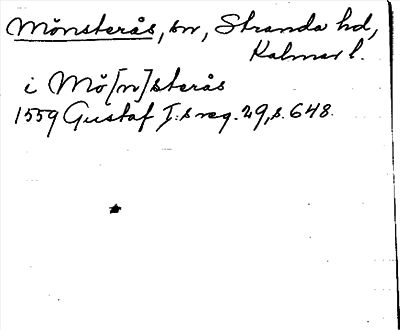 Mönsterås, sn, Stranda hd,
Kalmar l.
i Mö[n]sterås
1559 Gustaf I:s reg. 29, s. 648.